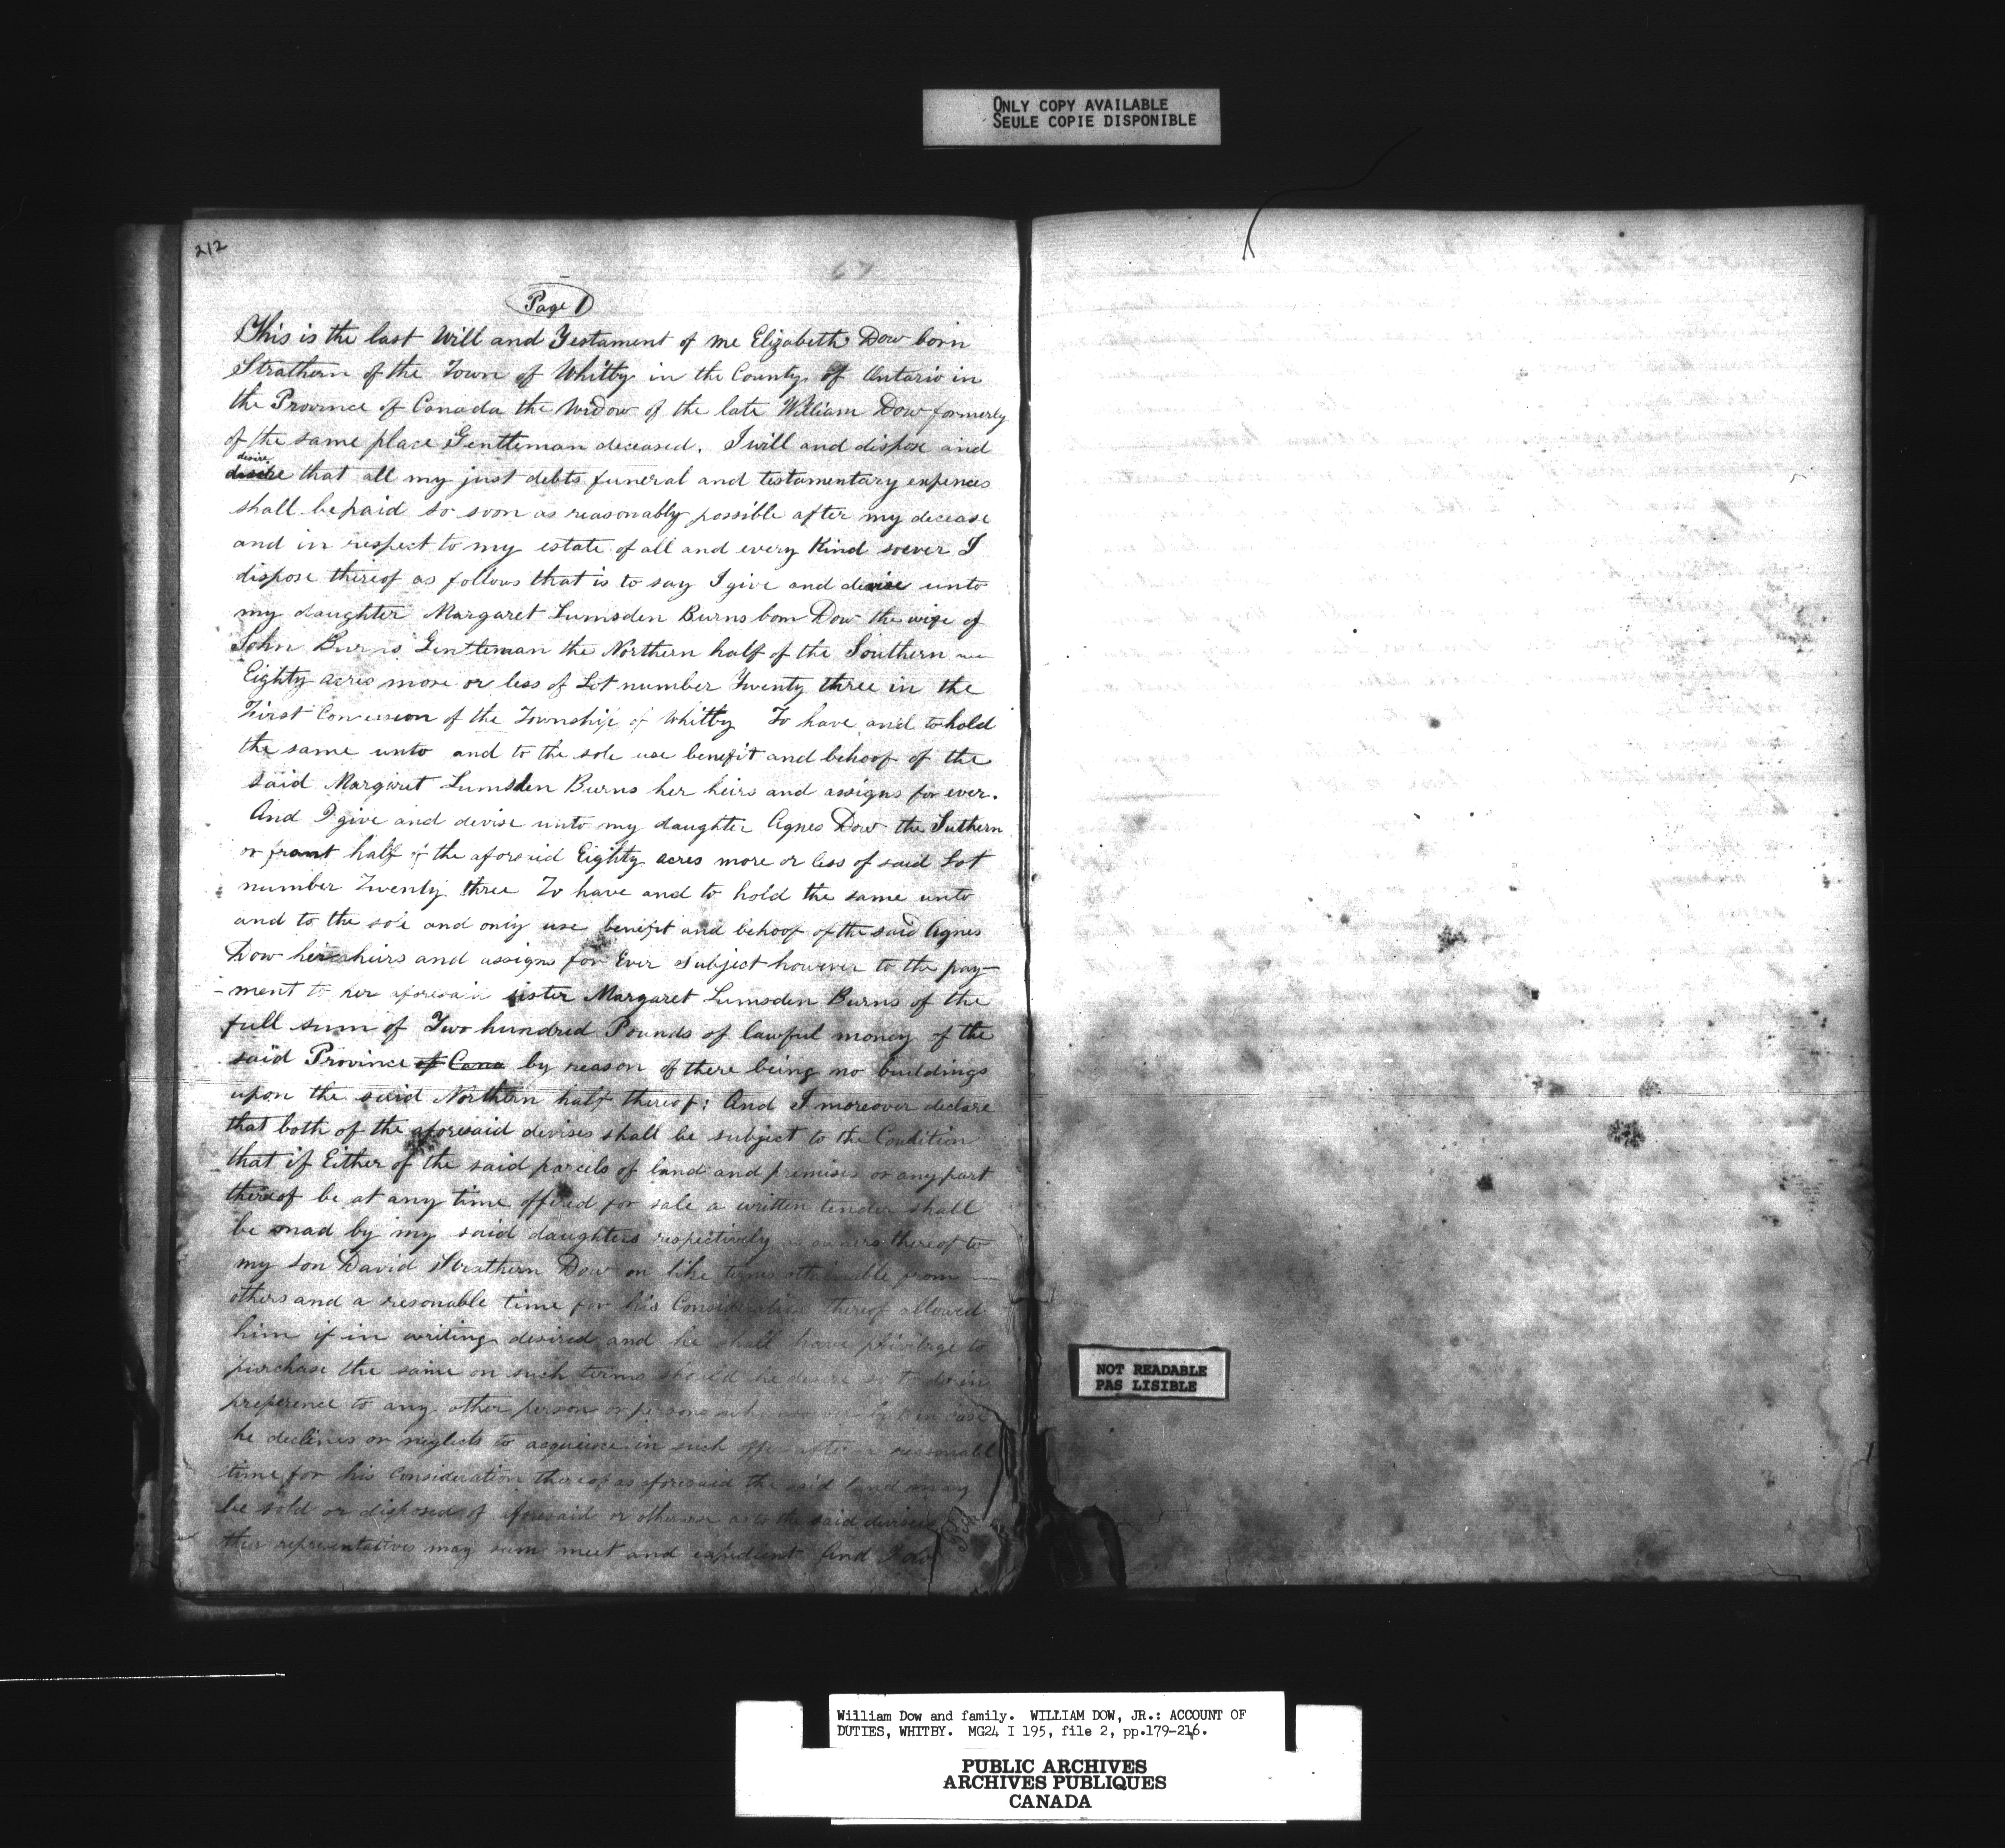 ONLY COPY AVAILABLE
SEULE COPIE DISPONIBLE
212
67
Page 1
This is the last Will and Testament of me Elizabeth Dow born
Strathern of the Town of Whitby in the County of Ontario in
the Province of Canada the Widow of the late William Dow formerly
of the same place Gentleman deceased. I will and dispose and
desire
that all my just debts funeral and testamentary expences
shall be paid so soon as reasonably possible after my decease
and in respect to my estate of all and every Kind soever I
dispose thereof as follows that is to say I give and devise unto
my daughter Margaret Lumsden Burns born Dow the wife of
John Burns Gentleman the Northern half of the Southern
Eighty acres more or less of Lot number Twenty three in the
First Concession of the Township of Whitby To have and to hold
the same unto and to the sole use benefit and behoof of the
said Margaret Lumsden Burns her heirs and assigns for ever.
And I give and devise unto my daughter Agnes Dow the Suthern
or front half of the aforesaid Eighty acres more or less of said Lot
number Twenty three To have and to hold the same unto
and to the sole and only use benefit and behoof of the said Agnes
Dow her heirs and assigns for Ever Subject however to the pay-
-ment to her aforesaid sister Margaret Lumsden Burns of the
full sum of Two hundred Pounds of lawful money of the
said Province of Cana by reason of there being no buildings
upon the said Northern half thereof: And I moreover declare
that both of the aforesaid devises shall be subject to the Condition
that if Either of the said parcels of land and premises or any part
thereof be at any time offered for sale a written tender shall
be mad by my said daughters respectively as owners thereof to
my son David Strathern Dow on like terms attainable from
others and a resonable time for his Consideration thereof allowed
him if in writing desired and he shall have privilege to
purchase the same on such terms should he desire so to do in
preference to any other person or persons but in case
he declines or neglects to acquiesce in such offer after a reasonabl
time for his Consideration thereof as aforesaid the said land may
be sold or disposed of aforesaid or otherwise as to the said
their representatives may seem meet and expedient And I do
NOT READABLE
PAS LISIBLE
William Dow and family. WILLIAM DOW, JR.: ACCOUNT OF
DUTIES, WHITBY. MG24 I 195, file 2, pp.179-216.
PUBLIC ARCHIVES
ARCHIVES PUBLIQUES
CANADA